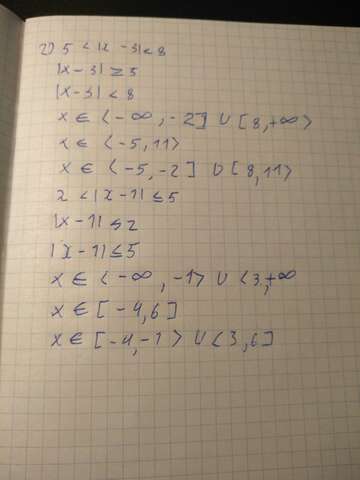 2) 5 < |x - 3| < 8
|x - 3| ≥ 5
|x - 3| < 8
x ∈ (-∞, -2] ∪ [8, +∞)
x ∈ (-5, 11)
x ∈ (-5, -2] ∪ [8, 11)
2 < |x - 1| ≤ 5
|x - 1| ≤ 2
|x - 1| ≤ 5
x ∈ (-∞, -1) ∪ (3, +∞
x ∈ [-4, 6]
x ∈ [-4, -1) ∪ (3, 6]